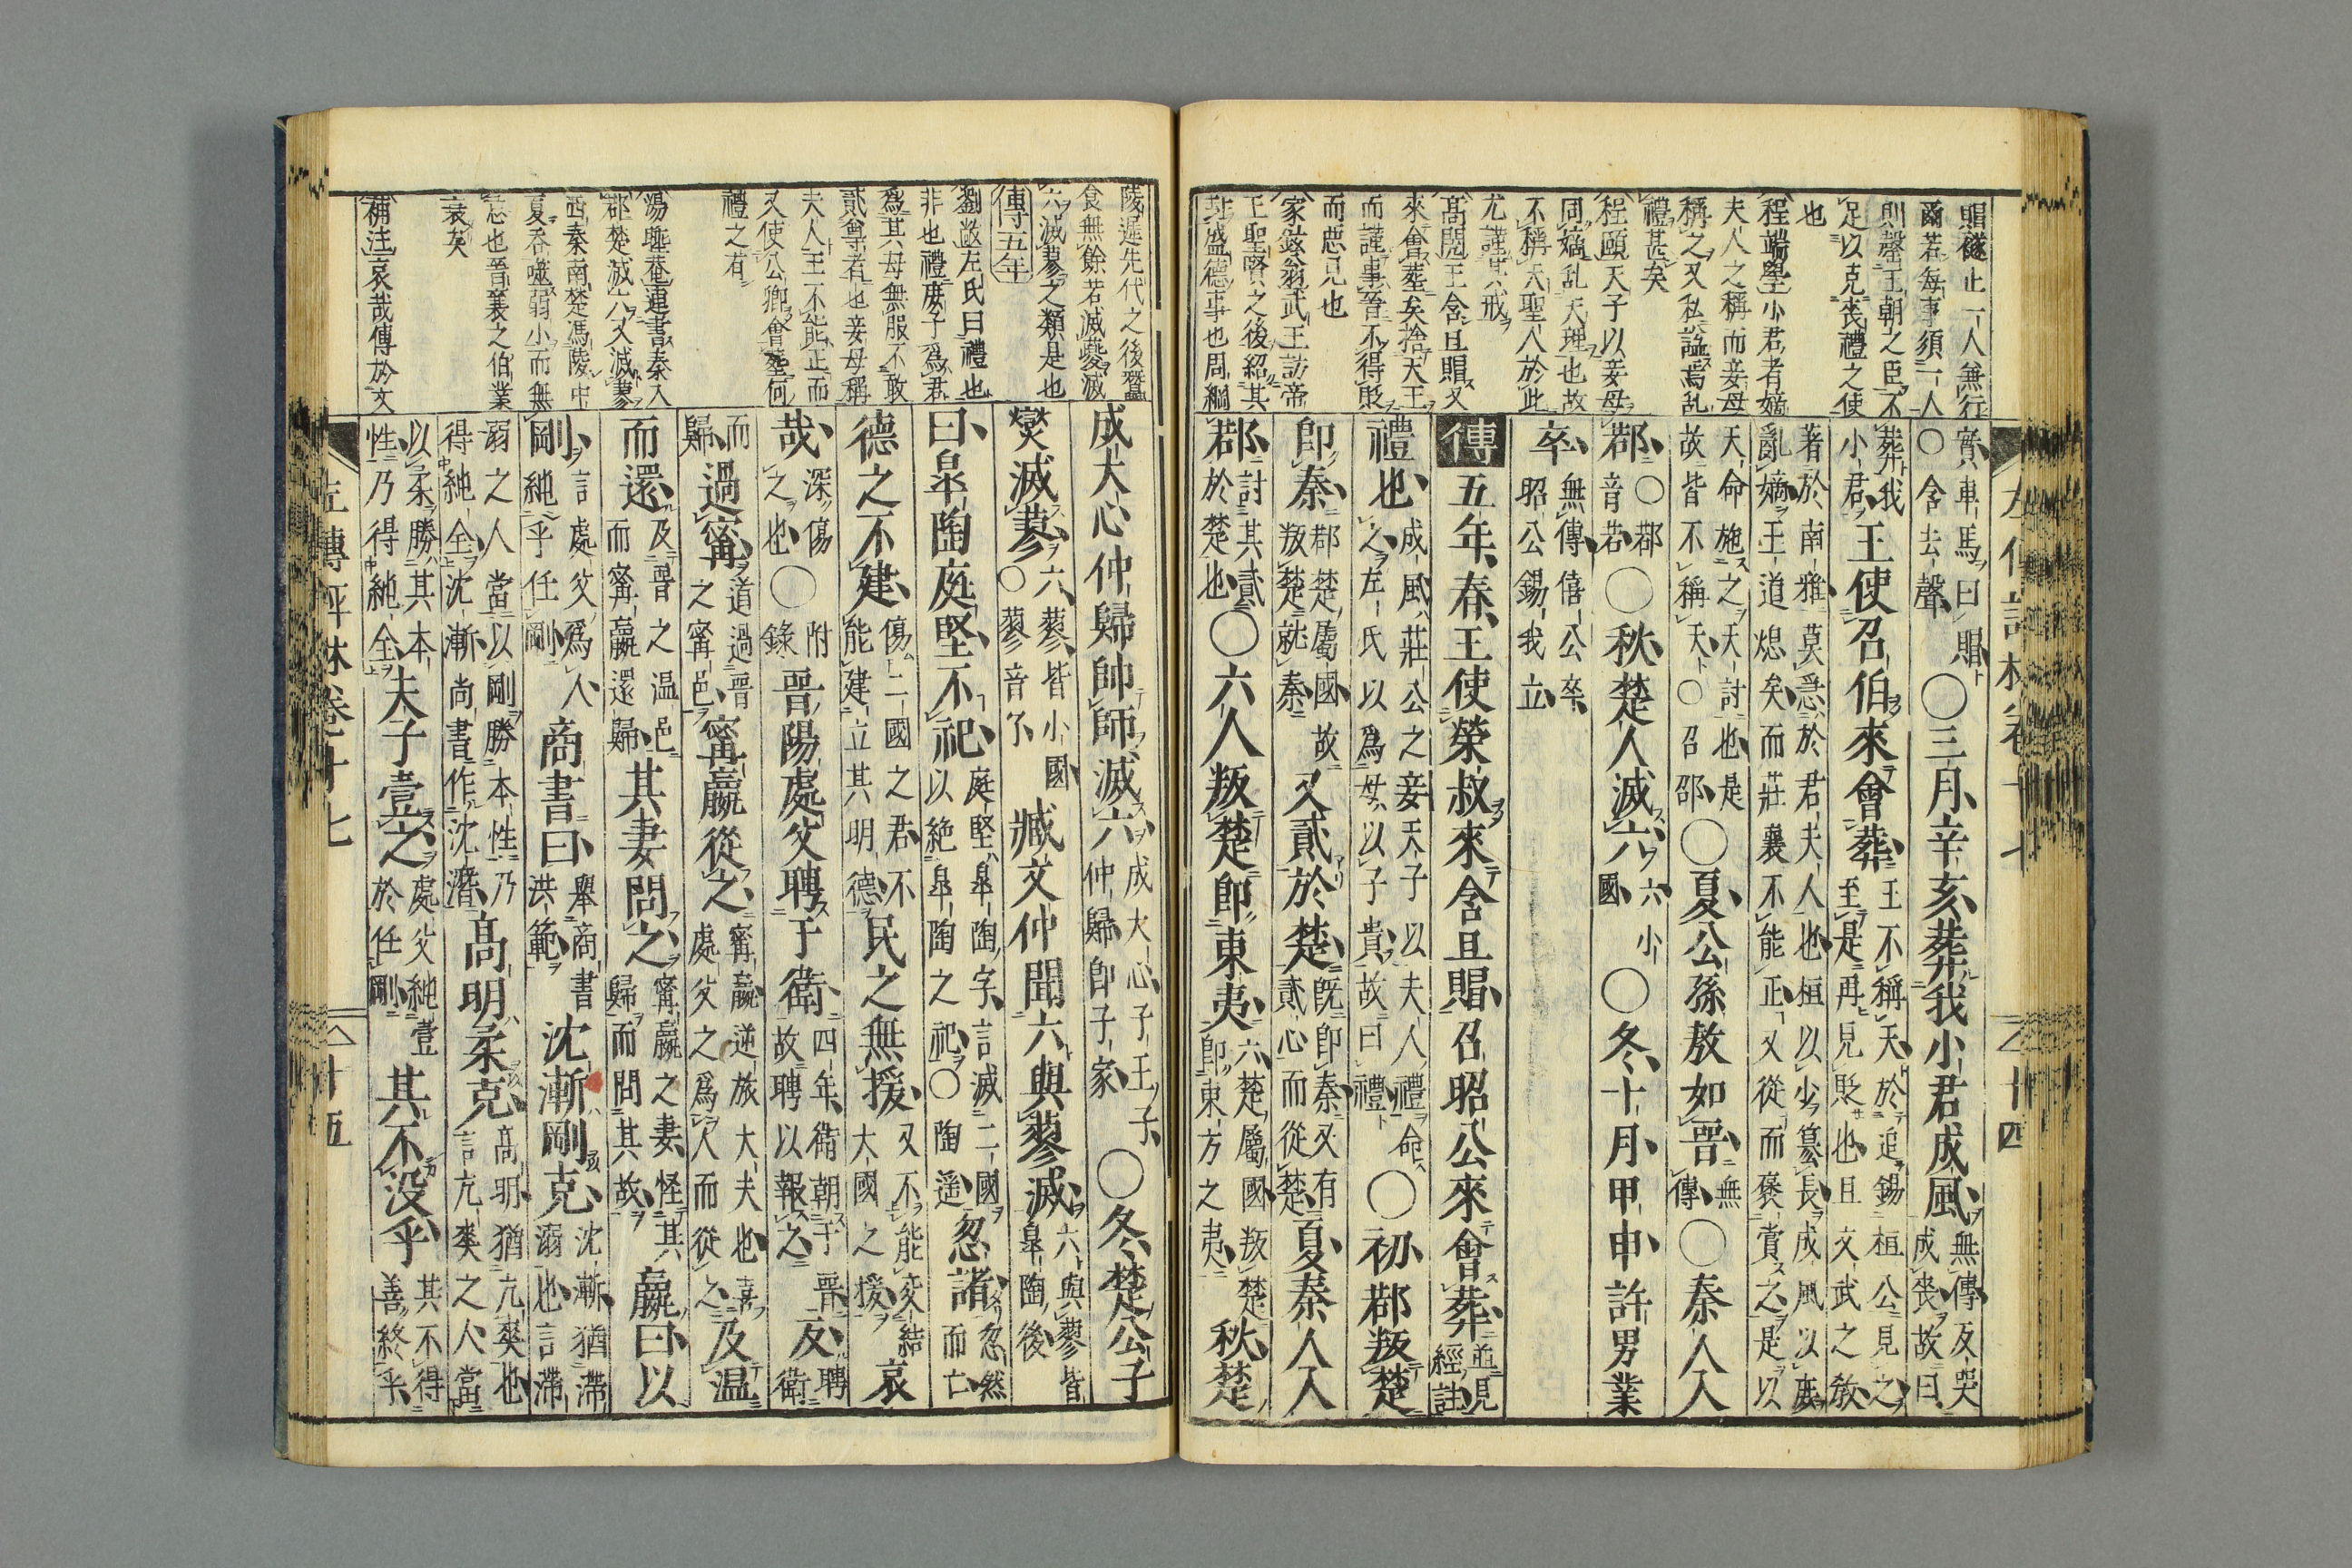 賵襚止一人兼行
爾若每事須一人
則罄王朝之臣不
足以充喪禮之使
也
程端學小君者嫡
夫人之稱而妾母
稱之又私謚焉乱
禮甚矣
程頤天子以妾母
同嫡乱天理也故
不稱天聖人於此
尤謹其戒
髙閌王含且賵又
來會葬矣捨天王
而謹事吾不得貶
而惡見也
家鉉翁武王訪帝
王聖賢之後紹其
封盛德事也周綱
左傳評林卷十七 廿四
實車馬曰賵○含去聲○三月辛亥葬我小君成風無傳反哭成喪故曰
葬我小君王使召伯來會葬王不稱天於追錫桓公見之至是再見貶也且文武之敎
著於南雅莫急於君夫人也桓以少簒長成風以庶亂嫡王道熄矣而莊襄不能正又從而褒賞之是以
天命施之天討也是故皆不稱天○召邵○夏公孫敖如晋無傳○秦人入
鄀○鄀音若○秋楚人滅六六小國○冬十月甲申許男業
卒無傳僖公卒昭公錫我立
傳五年春王使榮叔來含且賵召昭公來會葬並見經註
禮也成風莊公之妾天子以夫人禮命之左氏以爲母以子貴故曰禮○初鄀叛楚
卽秦鄀楚屬國故叛楚就秦又貳於楚既卽秦又有貳心而從楚夏秦人入
鄀討其貳於楚也○六人叛楚卽東夷六楚屬國叛楚卽東方之夷秋楚
陵遲先代之後蠶
食無餘若滅夔滅
六滅蓼之類是也
傳五年
劉敞左氏曰禮也
非也禮庶子爲君
爲其母無服不敢
貳尊者也妾母稱
夫人王不能正而
又使公卿會葬何
禮之有
湯睡菴運書秦入
鄀楚滅六又滅蓼
西秦南楚馮陵中
夏吞噬弱小而無
忌也晋襄之伯業
衰矣
補注哀哉傳於文
成大心仲歸帥師滅六成大心子玉子仲歸卽子家○冬楚公子
燮滅蓼六蓼皆小國○蓼音了臧文仲聞六與蓼滅六與蓼皆皐陶後
曰皐陶庭堅不祀庭堅皐陶字言滅二國以絶皐陶之祀○陶遥忽諸忽然而亡
德之不建傷二國之君不能建立其明德民之無援又不能交結大國之援哀
哉深傷之也○附錄晋陽處父聘于衛四年衛朝于晋故聘以報之反聘衛
而歸過甯道過晋之甯邑甯嬴從之甯嬴逆旅大夫也喜處父之爲人而從之及温
而還及晋之温邑而甯嬴還歸其妻問之甯嬴之妻怪其歸而問其故嬴曰以
剛言處父爲人剛純乎任剛商書曰舉商書洪範沈漸剛克沈漸猶滯溺也言滯
溺之人當以剛勝本性乃得純全沈漸尚書作沈潛髙明柔克髙明猶亢爽也言亢爽之人當
以柔勝其本性乃得純全夫子壹之處父純壹於任剛其不没乎其不得善終乎
左傳評林卷十七 廿五